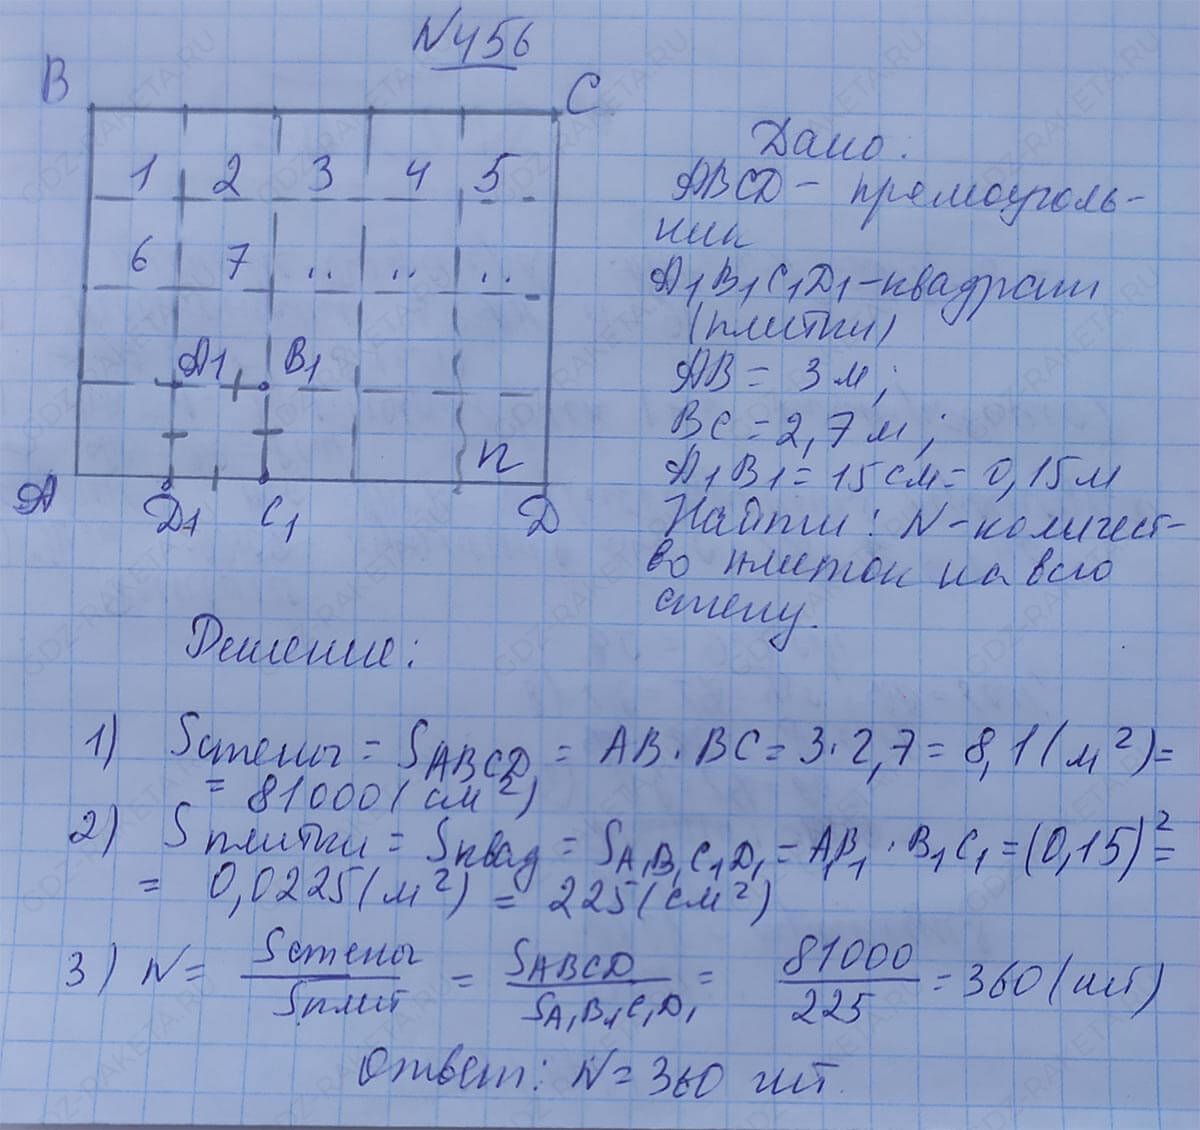 N456
B
C
1 2 3 4 5
6 7 .. .. ..
A1 B1
n
A
D1 C1
D
Дано:
ABCD - прямоуголь-
ник
A1B1C1D1 - квадрат
(плитки)
AB = 3 м;
BC = 2,7 м;
A1B1 = 15 см = 0,15 м
Найти: N - количест-
во плиток на всю
стену.
Решение:
1) Sстены = SABCD = AB · BC = 3 · 2,7 = 8,1 (м²) =
= 81000 (см²)
2) Sплитки = Sквад = SA1B1C1D1 = A1B1 · B1C1 = (0,15)² =
= 0,0225 (м²) = 225 (см²)
3) N = Sстены / Sплит = SABCD / SA1B1C1D1 = 81000 / 225 = 360 (шт)
Ответ: N = 360 шт.
GDZ-RAKETA.RU